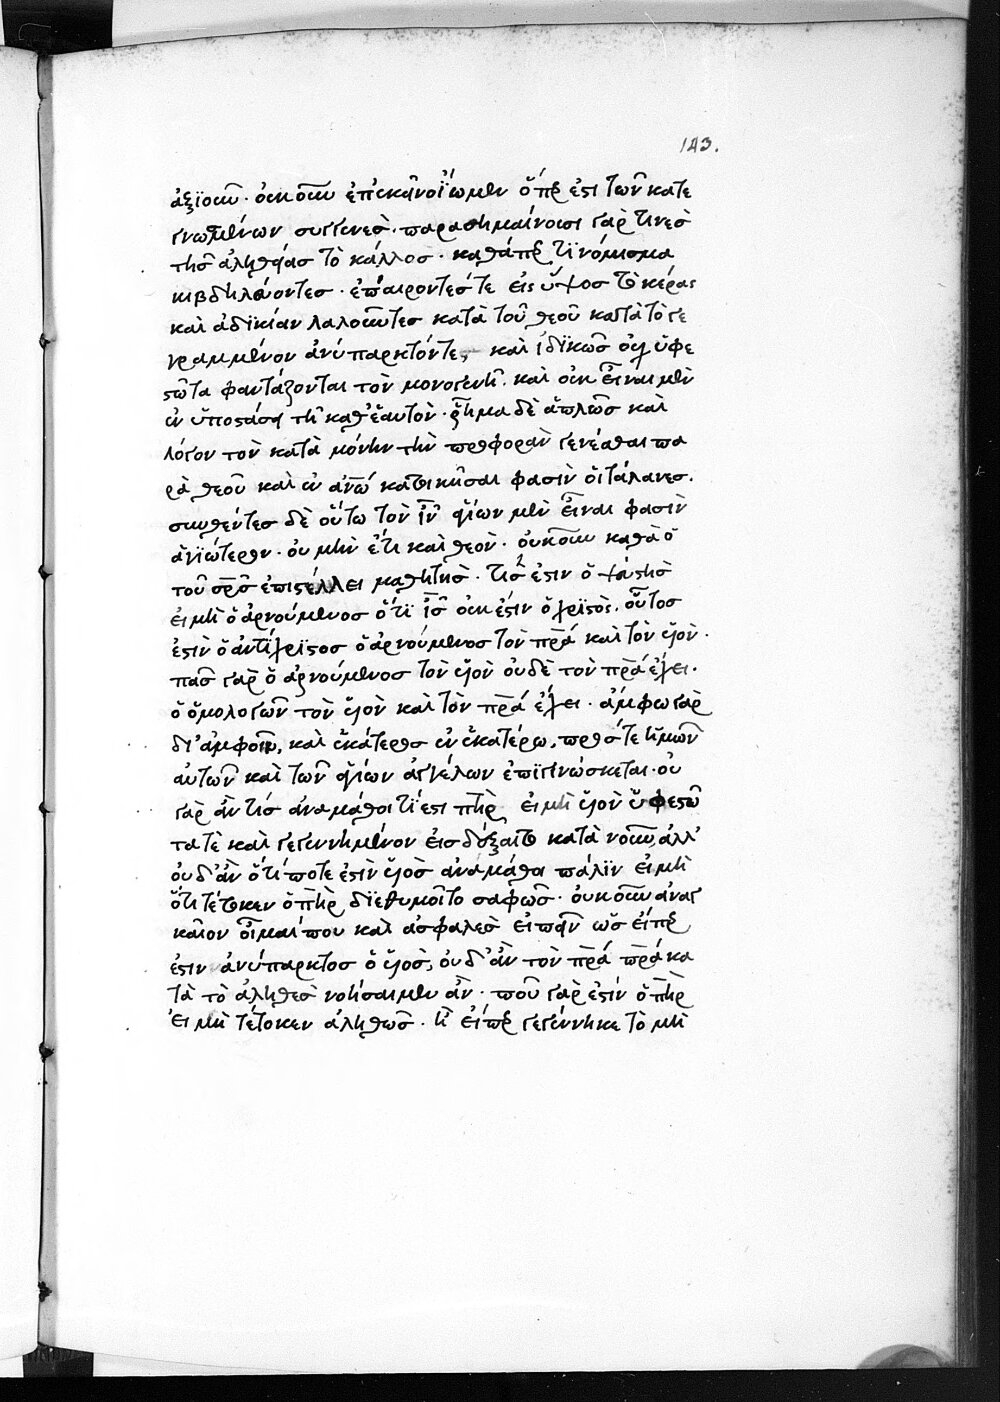 143.
ἀξιοῦν· οὐκοῦν ἐπ' ἐκεῖνο ἴωμεν ὅπερ ἐστὶ τῶν κατε
γνωσμένων συγγενές· παρασημαίνουσι γάρ τινες
τῆς ἀληθείας τὸ κάλλος· καθάπερ τι νόμισμα
κιβδηλεύοντες· ἐπαίροντές τε εἰς ὕψος τὸ κέρας
καὶ ἀδικίαν λαλοῦντες κατὰ τοῦ θεοῦ κατὰ τὸ γε
γραμμένον ἀνύπαρκτόν τε, καὶ ἰδικῶς οὐχ ὑφε
στῶτα φαντάζονται τὸν μονογενῆ· καὶ οὐκ εἶναι μὲν
ἐν ὑποστάσει τῇ καθ' ἑαυτὸν· ῥῆμα δὲ ἁπλῶς καὶ
λόγον τὸν κατὰ μόνην τὴν προφορὰν γενέσθαι πα
ρὰ θεοῦ καὶ ἐν ἀνῶ κατοικῆσαι φασὶν οἱ τάλανες.
συνθέντες δὲ οὕτω τὸν ἰν ἁγίων μὲν εἶναι φασὶν
ἁγιώτερον· οὐ μὴν ἔτι καὶ θεὸν· οὐκοῦν καθὰ ὁ
τοῦ σρς ἐπιστέλλει μαθητὴς· τίς ἐστιν ὁ ψεύστης
εἰ μὴ ὁ ἀρνούμενος ὅτι ις οὐκ ἔστιν ὁ χριστὸς· οὗτος
ἐστὶν ὁ ἀντίχριστος ὁ ἀρνούμενος τὸν πρα καὶ τὸν υἱὸν·
πᾶς γὰρ ὁ ἀρνούμενος τὸν υἱὸν οὐδὲ τὸν πρα ἔχει·
ὁ ὁμολογῶν τὸν υἱὸν καὶ τὸν πρα ἔχει· ἄμφω γὰρ
δι' ἀμφοῖν, καὶ ἑκάτερος ἐν ἑκατέρω, πρός τε ἡμῶν
αὐτῶν καὶ τῶν ἁγίων ἀγγέλων ἐπιγινώσκεται· οὐ
γὰρ ἄν τις ἀναμάθοι τί ἐστι πηρ εἰ μὴ υἱὸν ὑφεστῶ
τα τὲ καὶ γεγεννημένον εἰσδέξαιτο κατὰ νοῦν, ἀλλ'
οὐδ' ἂν ὅτι ποτέ ἐστιν υἱὸς ἀναμάθοι πάλιν εἰ μὴ
ὅτι τέτοκεν ὁ πηρ διεθυμοῖτο σαφῶς· οὐκοῦν ἀναγ
καῖον οἶμαί που καὶ ἀσφαλὲς εἰπεῖν ὡς εἴπερ
ἐστιν ἀνύπαρκτος ὁ υἱὸς, οὐδ' ἂν τὸν πρα πρα κα
τὰ τὸ ἀληθὲς νοήσαιμεν ἂν· ποῦ γάρ ἐστιν ὁ πηρ
εἰ μὴ τέτοκεν ἀληθῶς· ἢ εἴπερ γεγέννηκε τὸ μὴ